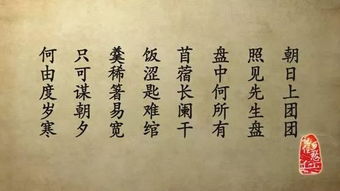 朝日上团团
照见先生盘
盘中何所有
苜蓿长阑干
饭涩匙难绾
羹稀箸易宽
只可谋朝夕
何由度岁寒